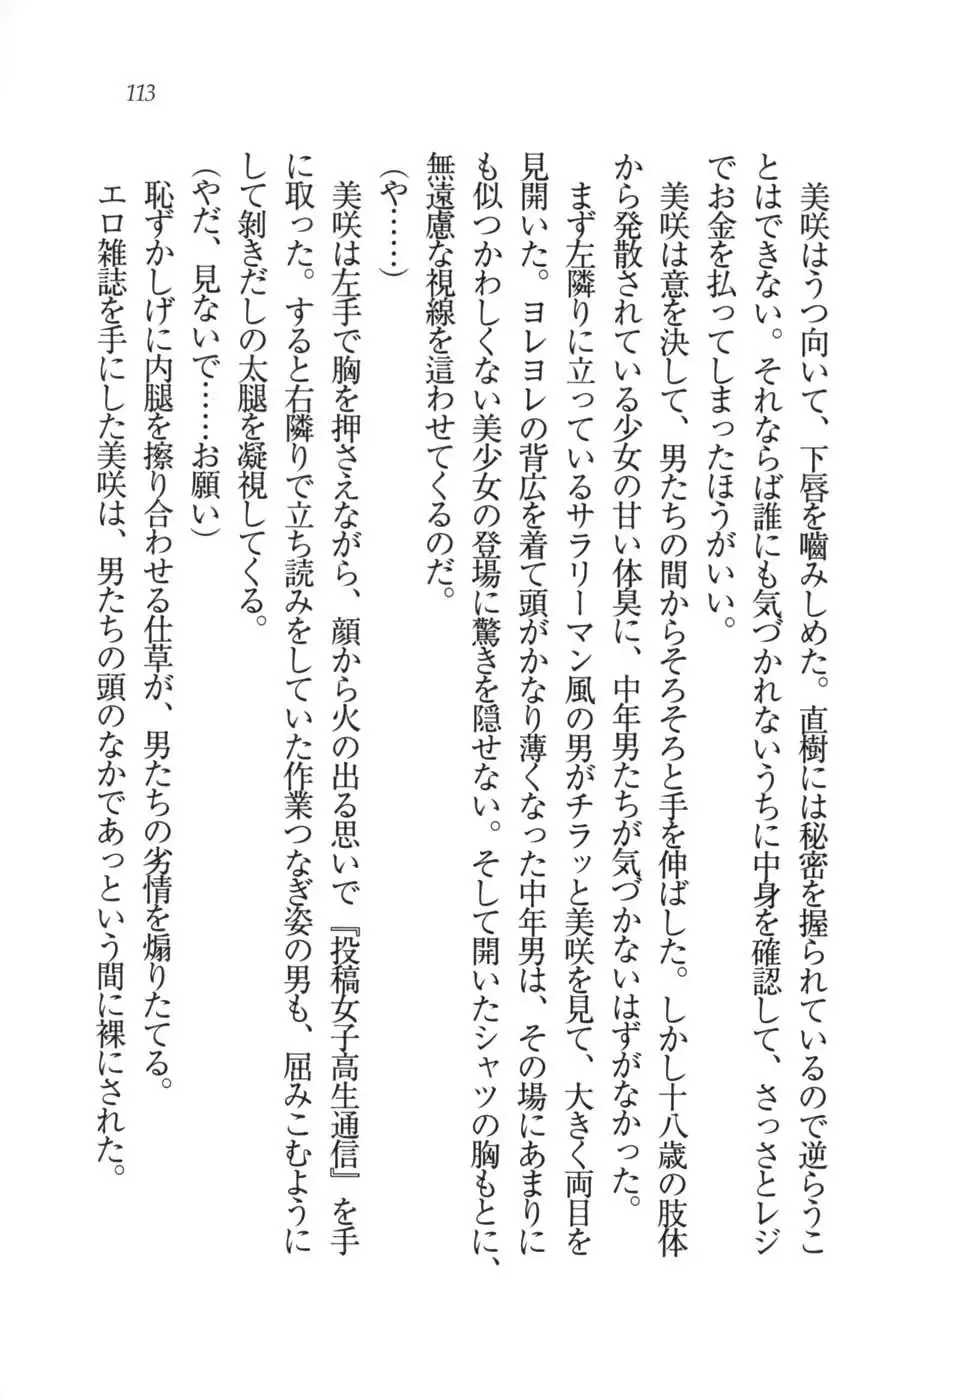 113
　美咲はうつ向いて、下唇を嚙みしめた。直樹には秘密を握られているので逆らうこ
とはできない。それならば誰にも気づかれないうちに中身を確認して、さっさとレジ
でお金を払ってしまったほうがいい。
　美咲は意を決して、男たちの間からそろそろと手を伸ばした。しかし十八歳の肢体
から発散されている少女の甘い体臭に、中年男たちが気づかないはずがなかった。
　まず左隣りに立っているサラリーマン風の男がチラッと美咲を見て、大きく両目を
見開いた。ヨレヨレの背広を着て頭がかなり薄くなった中年男は、その場にあまりに
も似つかわしくない美少女の登場に驚きを隠せない。そして開いたシャツの胸もとに、
無遠慮な視線を這わせてくるのだ。
（や……）
　美咲は左手で胸を押さえながら、顔から火の出る思いで『投稿女子高生通信』を手
に取った。すると右隣りで立ち読みをしていた作業つなぎ姿の男も、屈みこむように
して剝きだしの太腿を凝視してくる。
（やだ、見ないで……お願い）
　恥ずかしげに内腿を擦り合わせる仕草が、男たちの劣情を煽りたてる。
　エロ雑誌を手にした美咲は、男たちの頭のなかであっという間に裸にされた。